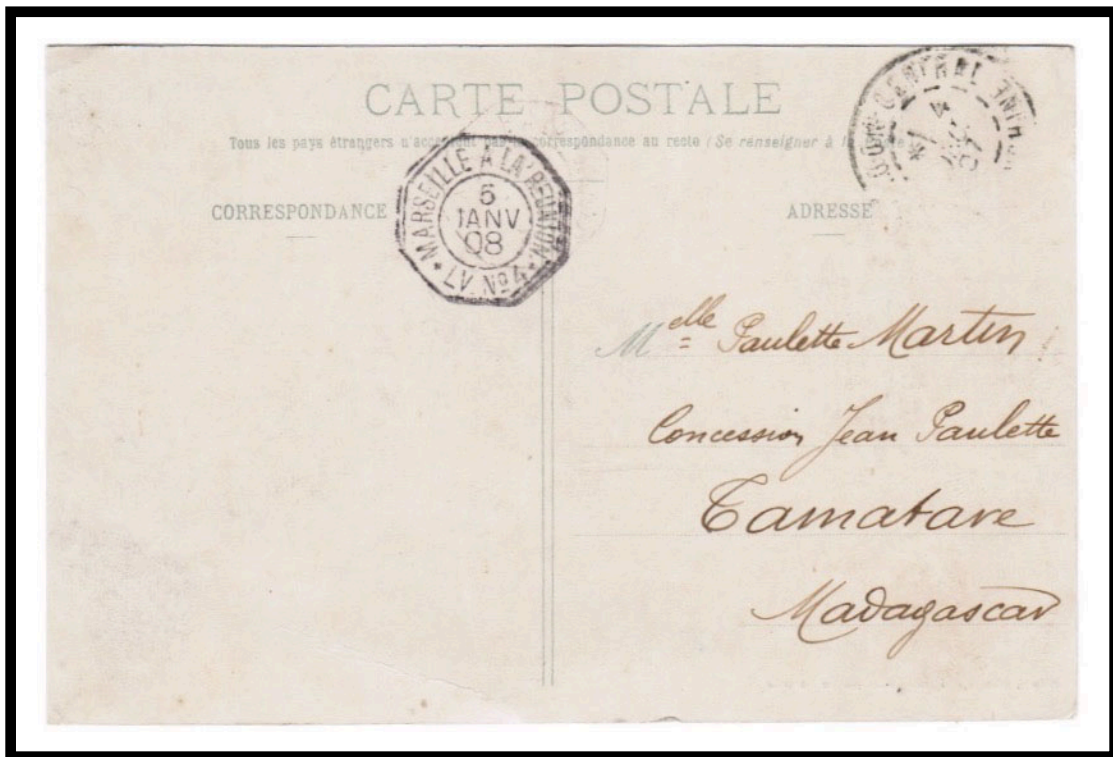 CARTE POSTALE
Tous les pays étrangers n'acceptent pas la correspondance au recto (Se renseigner à la
CORRESPONDANCE
ADRESSE
* MARSEILLE A LA REUNION. *
5
JANV
08
LV. No4
CENTRAL
Melle Paulette Martin
Concession Jean Paulette
Tamatave
Madagascar